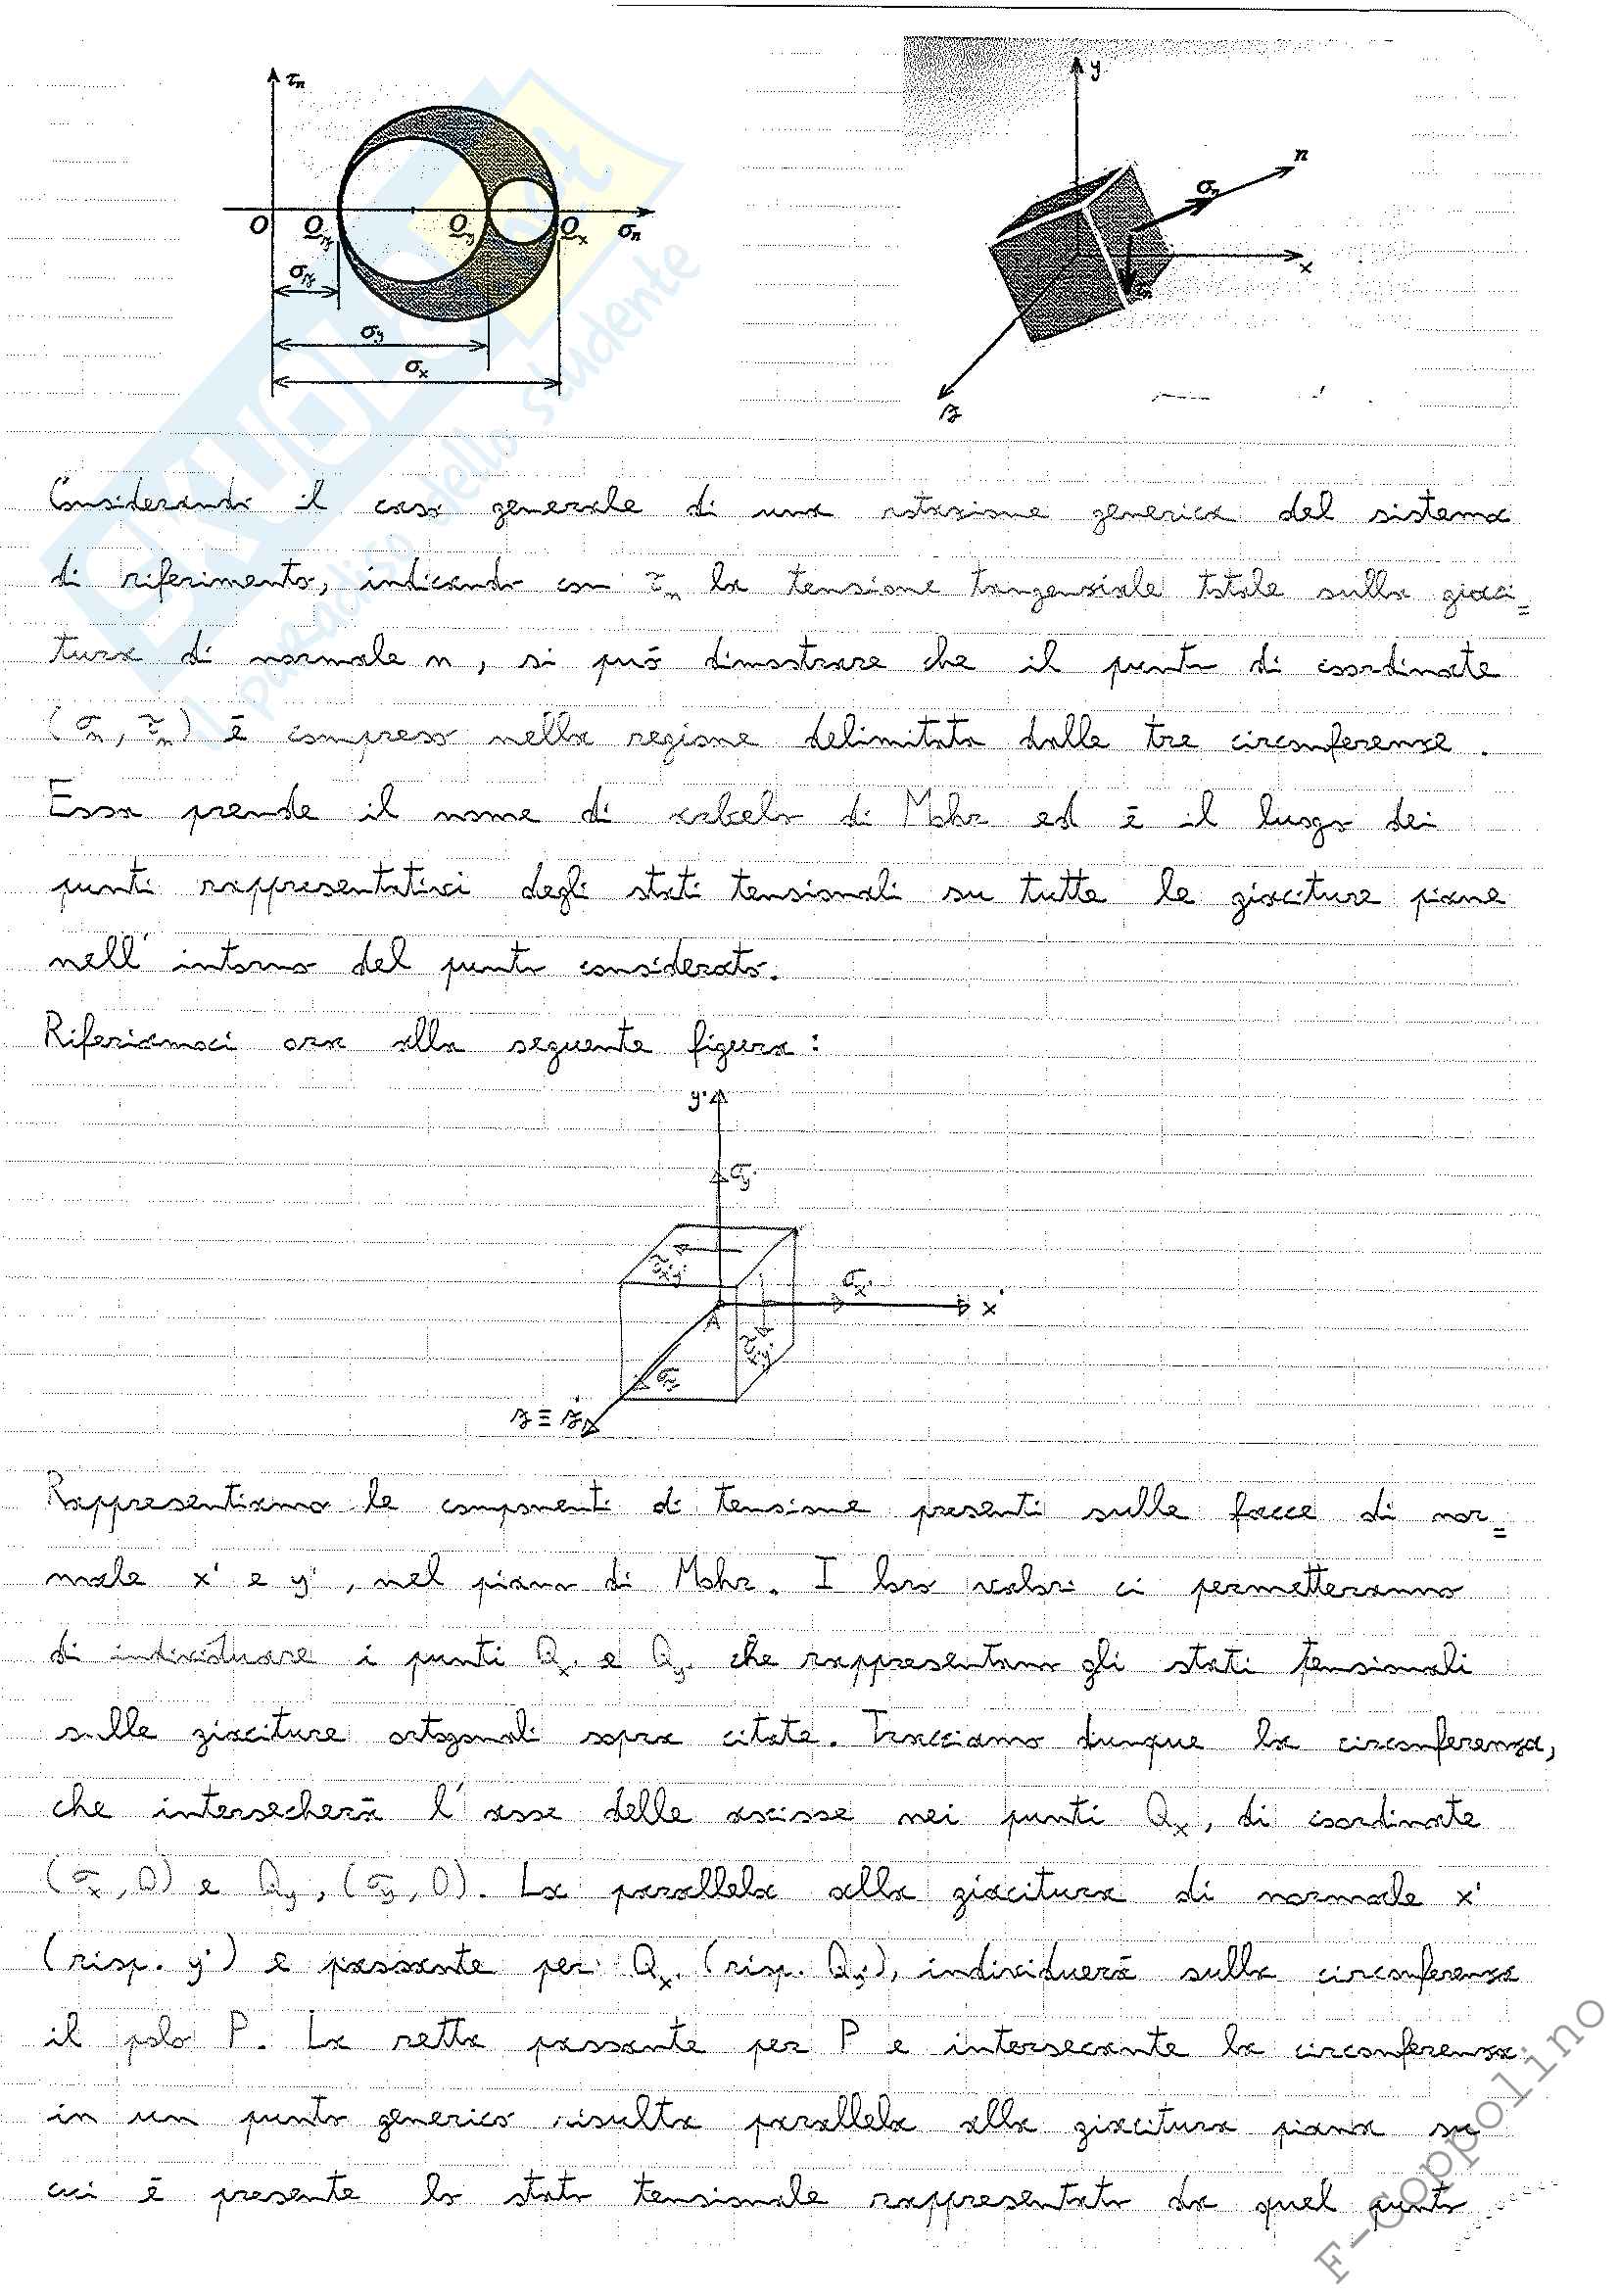 τn
O Qz Qy Qx σn
σz
σy
σx
y
n
σn
x
z
Considerando il caso generale di una rotazione generica del sistema
di riferimento, indicando con τn la tensione tangenziale totale sulla giaci=
tura di normale n, si può dimostrare che il punto di coordinate
(σn, τn) è compreso nella regione delimitata dalle tre circonferenze.
Essa prende il nome di arbelo di Mohr ed è il luogo dei
punti rappresentativi degli stati tensionali su tutte le giaciture piane
nell'intorno del punto considerato.
Riferiamoci ora alla seguente figura:
y'
σy'
τx'y'
σx'
x'
A
τx'y'
σz
z ≡ z'
Rappresentiamo le componenti di tensione presenti sulle facce di nor=
male x' e y', nel piano di Mohr. I loro valori ci permetteranno
di individuare i punti Qx' e Qy' che rappresentano gli stati tensionali
sulle giaciture ortogonali sopra citate. Tracciamo dunque la circonferenza,
che intersecherà l'asse delle ascisse nei punti Qx, di coordinate
(σx, 0) e Qy, (σy, 0). La parallela alla giacitura di normale x'
(risp. y') e passante per Qx' (risp. Qy'), individuerà sulla circonferenza
il polo P. La retta passante per P e intersecante la circonferenza
in un punto generico risulta parallela alla giacitura piana su
cui è presente lo stato tensionale rappresentato da quel punto
F-Coppolino